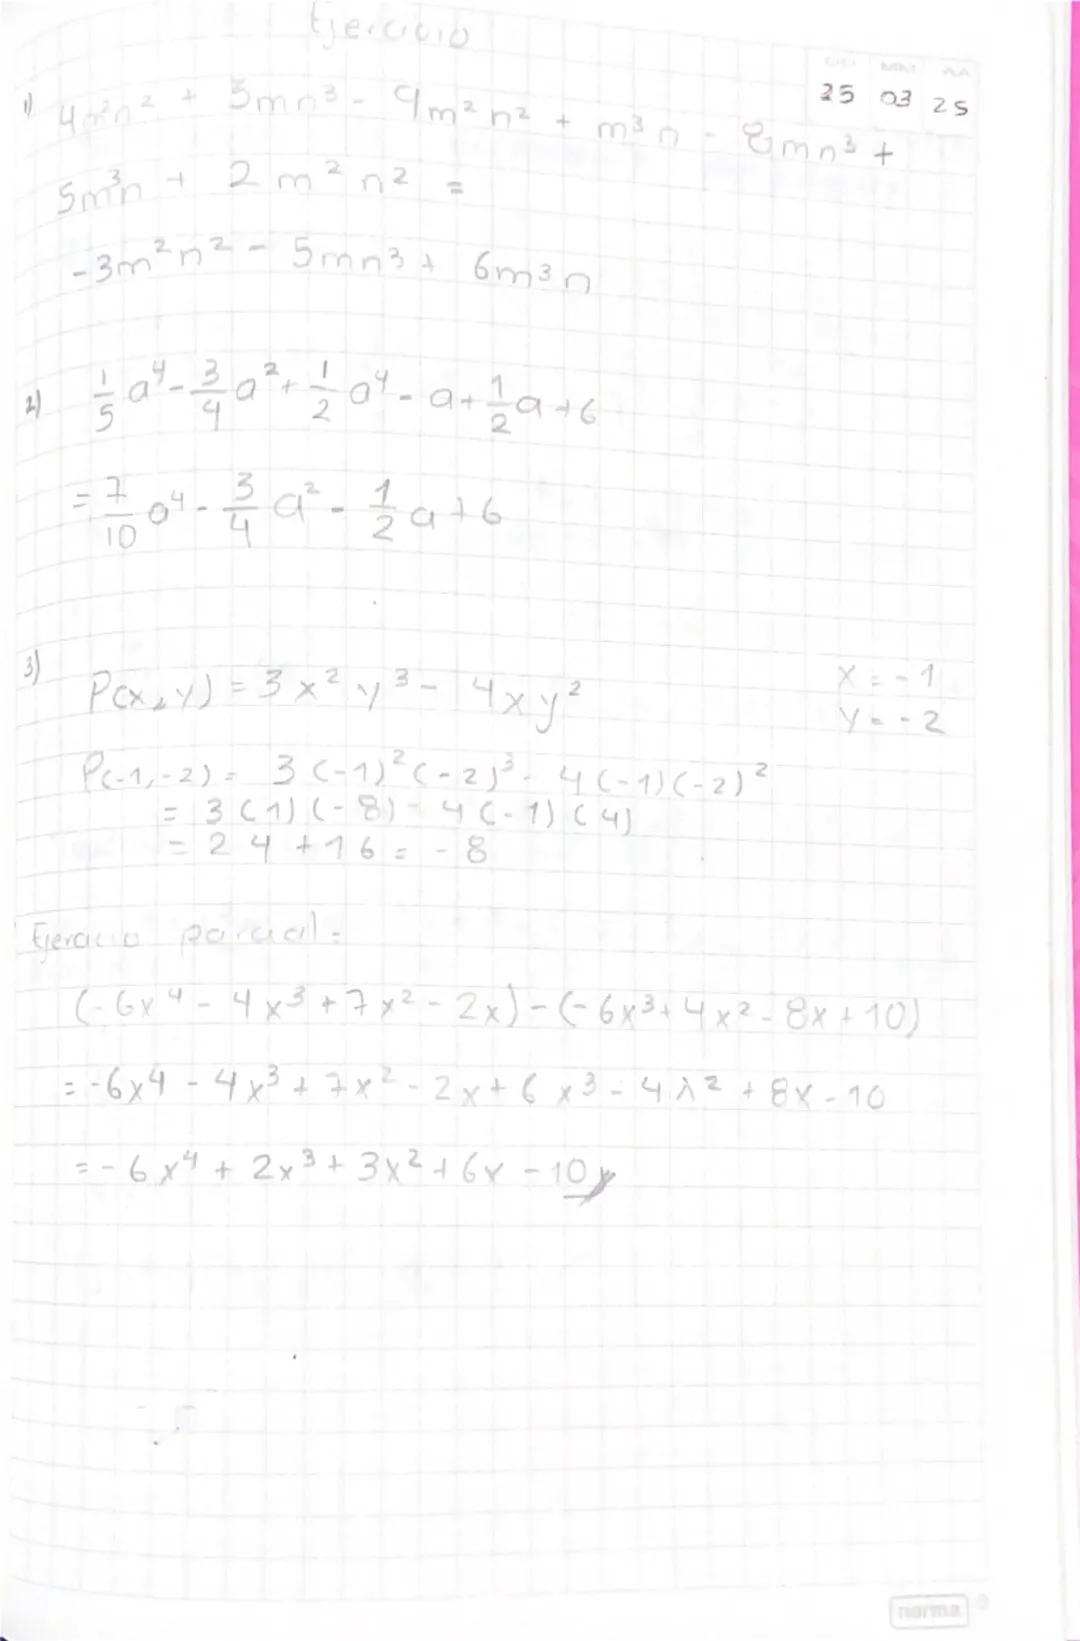 Ejercicio
DD MM AA
25 03 25
1) 4m²n² + 3mn³ - 9m²n² + m³n - 8mn³ +
5m³n + 2m²n² =
-3m²n² - 5mn³ + 6m³n
2) 1/5 a⁴ - 3/4 a² + 1/2 a⁴ - a + 1/2 a + 6
= 7/10 a⁴ - 3/4 a² - 1/2 a + 6
3) P(x,y) = 3x²y³ - 4xy²
x = -1
y = -2
P(-1,-2) = 3(-1)²(-2)³ - 4(-1)(-2)²
= 3(1)(-8) - 4(-1)(4)
= 24 + 16 = -8
Ejercicio parcial:
(-6x⁴ - 4x³ + 7x² - 2x) - (-6x³ + 4x² - 8x + 10)
= -6x⁴ - 4x³ + 7x² - 2x + 6x³ - 4x² + 8x - 10
= -6x⁴ + 2x³ + 3x² + 6x - 10
norma